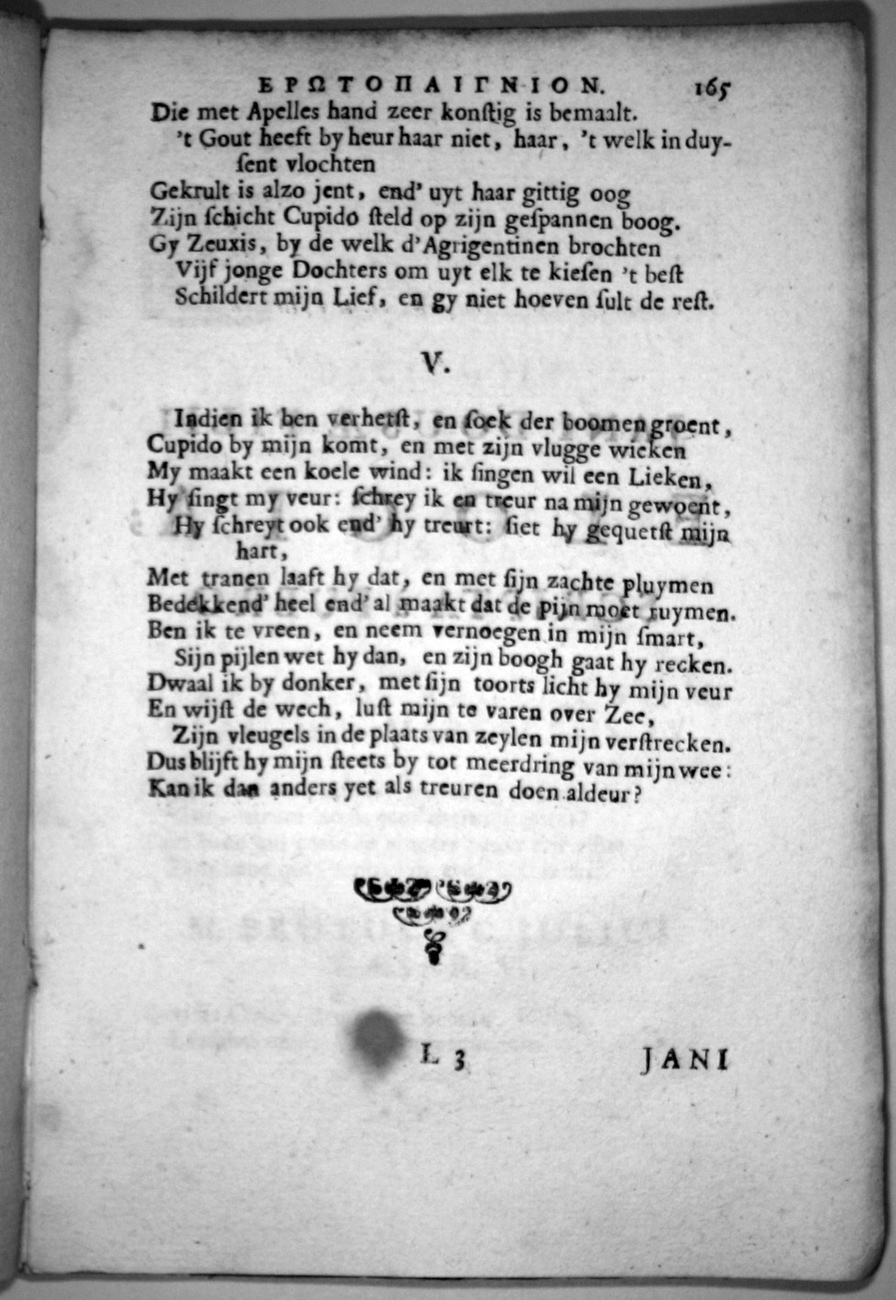 ΕΡΩΤΟΠΑΙΓΝΙΟΝ. 165
Die met Apelles hand zeer konſtig is bemaalt.
't Gout heeft by heur haar niet, haar, 't welk in duy-
ſent vlochten
Gekrult is alzo jent, end' uyt haar gittig oog
Zijn ſchicht Cupido ſteld op zijn geſpannen boog.
Gy Zeuxis, by de welk d'Agrigentinen brochten
Vijf jonge Dochters om uyt elk te kieſen 't beſt
Schildert mijn Lief, en gy niet hoeven ſult de reſt.
V.
Indien ik ben verhetſt, en ſoek der boomen groent,
Cupido by mijn komt, en met zijn vlugge wieken
My maakt een koele wind: ik ſingen wil een Lieken,
Hy ſingt my veur: ſchrey ik en treur na mijn gewoent,
Hy ſchreyt ook end' hy treurt: ſiet hy gequetſt mijn
hart,
Met tranen laaft hy dat, en met ſijn zachte pluymen
Bedekkend' heel end' al maakt dat de pijn moet ruymen.
Ben ik te vreen, en neem vernoegen in mijn ſmart,
Sijn pijlen wet hy dan, en zijn boogh gaat hy recken.
Dwaal ik by donker, met ſijn toorts licht hy mijn veur
En wijſt de wech, luſt mijn te varen over Zee,
Zijn vleugels in de plaats van zeylen mijn verſtrecken.
Dus blijft hy mijn ſteets by tot meerdring van mijn wee:
Kan ik dan anders yet als treuren doen aldeur?
L 3 JANI